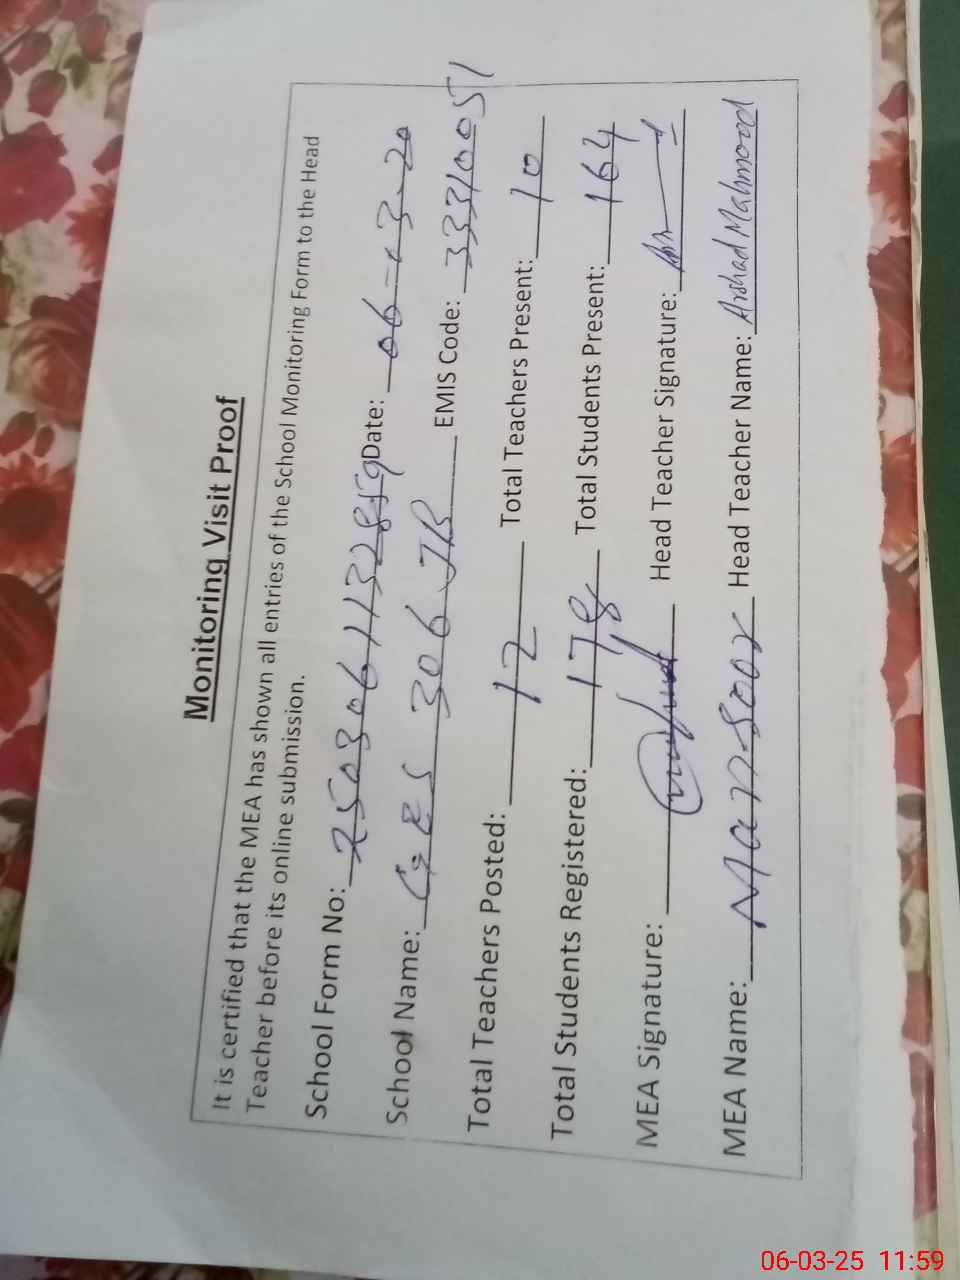 Monitoring Visit Proof
It is certified that the MEA has shown all entries of the School Monitoring Form to the Head
Teacher before its online submission.
School Form No: 2503061132859 Date: 06-03-20
School Name: GES 306 JB EMIS Code: 33310051
Total Teachers Posted: 12 Total Teachers Present: 10
Total Students Registered: 178 Total Students Present: 164
MEA Signature: Head Teacher Signature:
MEA Name: Mansoor Head Teacher Name: Arshad Mahmood
06-03-25 11:59